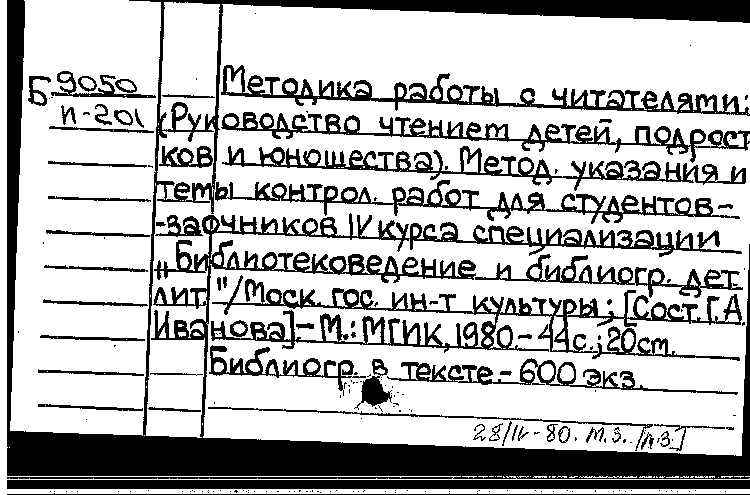 Б 9050 Методика работы с читателями:
п-201 (Руководство чтением детей, подрост
ков и юношества). Метод. указания и
темы контрол. работ для студентов-
-заочников IV курса специализации
„Библиотековедение и библиогр. дет.
лит."/Моск. гос. ин-т культуры; [Сост. Г.А
Иванова].- М.: МГИК, 1980.- 44с.; 20см.
Библиогр. в тексте.- 600 экз.
28/IV-80. М.З. [п.3]